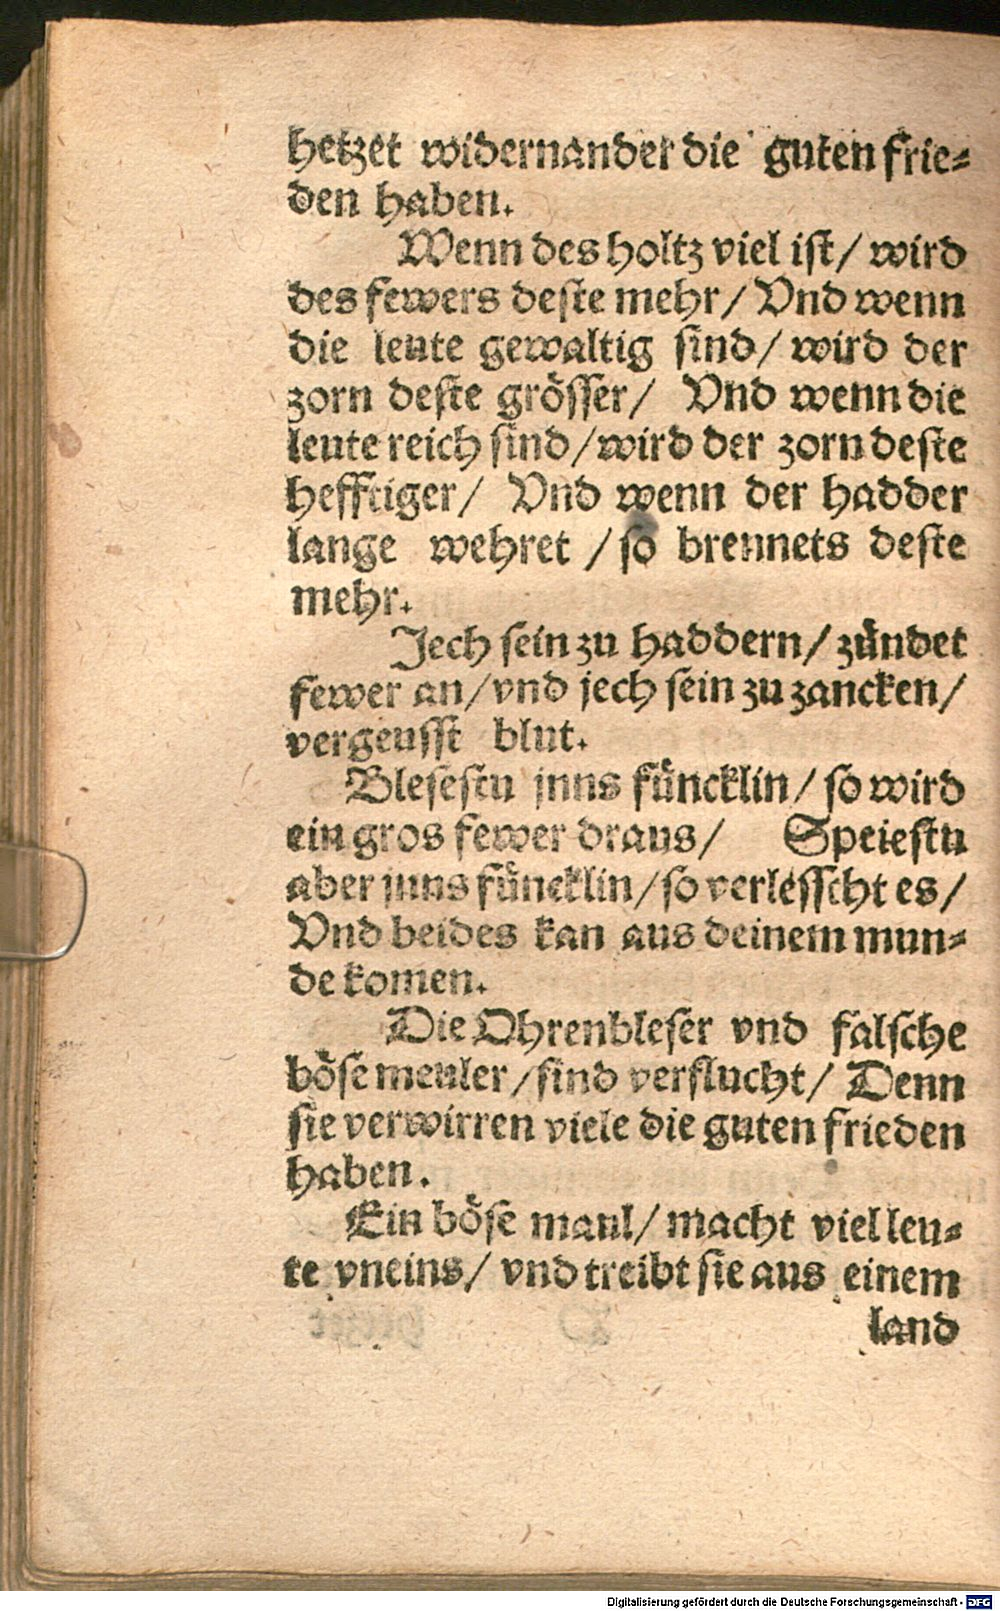 hetzet widernander die guten frie⸗
den haben.
Wenn des holtz viel ist/ wird
des fewers deste mehr/ Vnd wenn
die leute gewaltig sind/ wird der
zorn deste grösser/ Vnd wenn die
leute reich sind/ wird der zorn deste
hefftiger/ Vnd wenn der hadder
lange wehret / so brennets deste
mehr.
Jech sein zu haddern/ zündet
fewer an/ vnd jech sein zu zancken/
vergeusst blut.
Blesestu jnns füncklin/ so wird
ein gros fewer draus/ Speiestu
aber jnns füncklin/ so verlesscht es/
Vnd beides kan aus deinem mun⸗
de komen.
Die Ohrenbleser vnd falsche
böse meuler/ sind verflucht/ Denn
sie verwirren viele die guten frieden
haben.
Ein böse maul/ macht viel leu⸗
te vneins/ vnd treibt sie aus einem
land
Digitalisierung gefördert durch die Deutsche Forschungsgemeinschaft - DFG